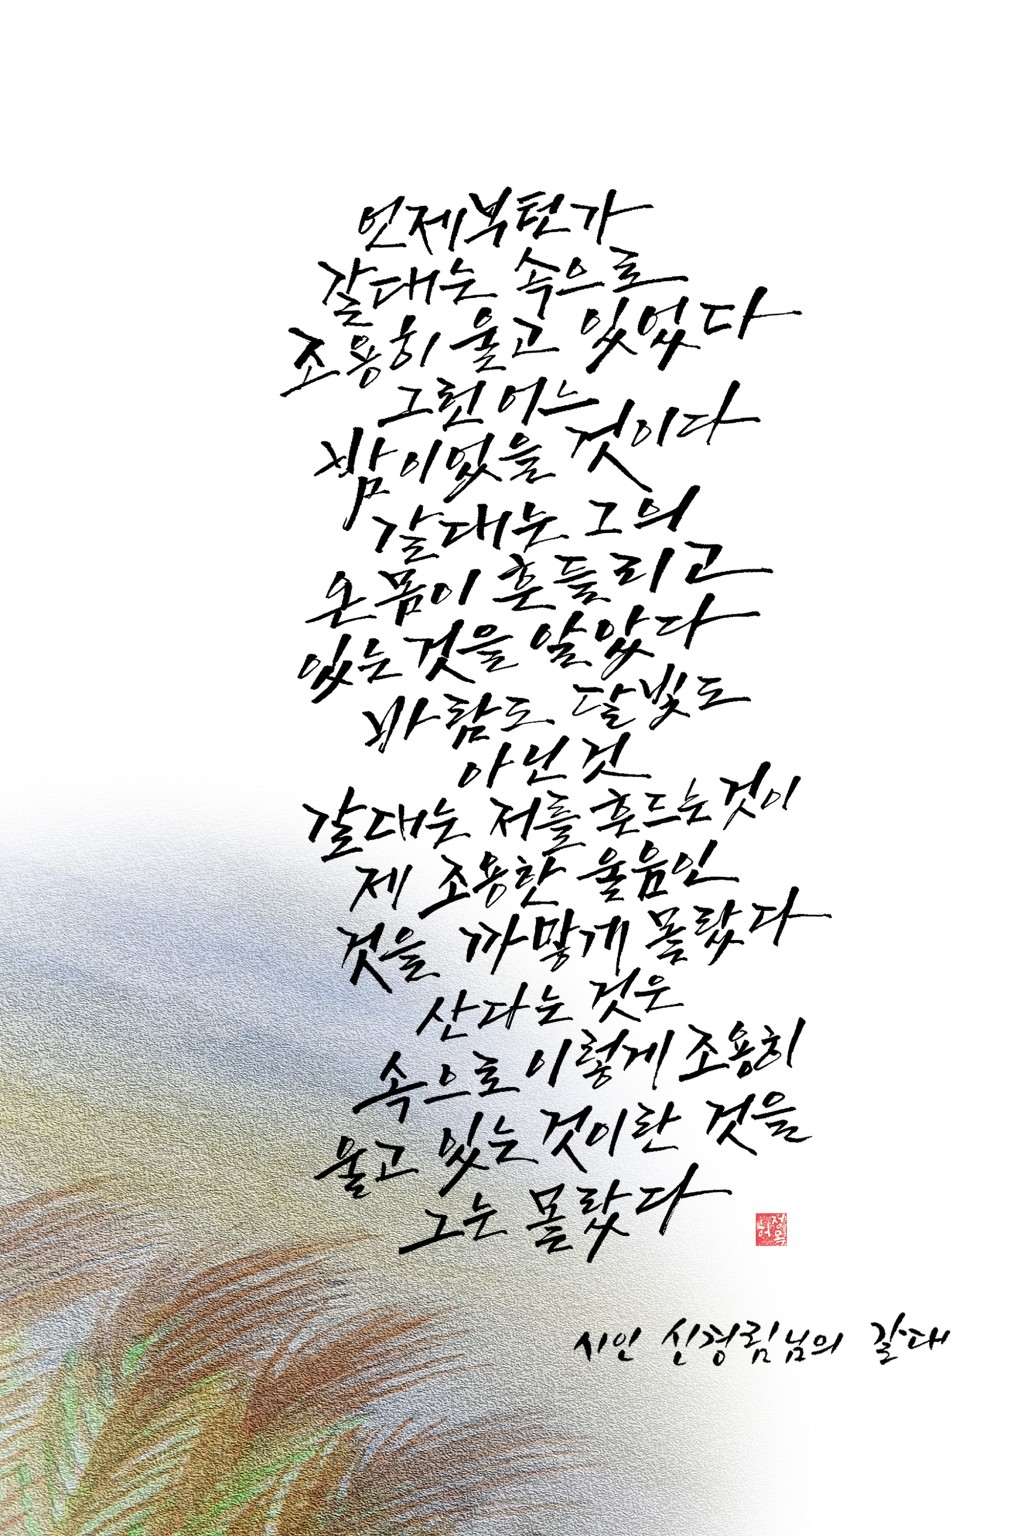 언제부턴가
갈대는 속으로
조용히 울고 있었다
그런 어느
밤이었을 것이다
갈대는 그의
온몸이 흔들리고
있는것을 알았다
바람도 달빛도
아닌것
갈대는 저를 흔드는것이
제 조용한 울음인
것을 까맣게 몰랐다
산다는 것은
속으로 이렇게 조용히
울고 있는것이란 것을
그는 몰랐다
시인 신경림님의 갈대